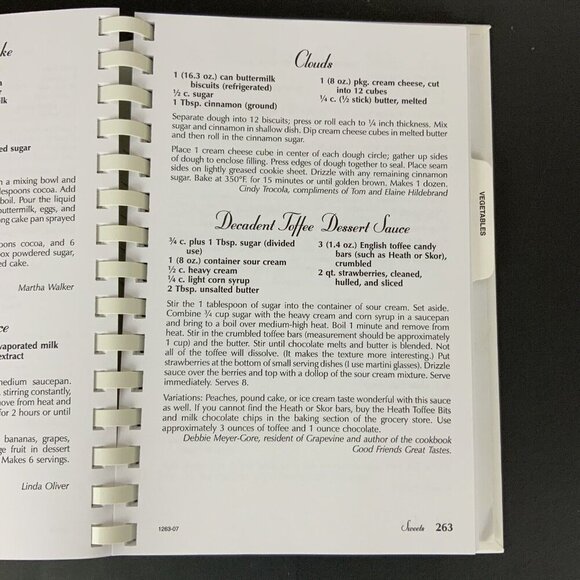 ke
lk
ed sugar
n a mixing bowl and
espoons cocoa. Add
boil. Pour the liquid
uttermilk, eggs, and
ong cake pan sprayed
oons cocoa, and 6
ox powdered sugar,
ed cake.
Martha Walker
ce
vaporated milk
extract
medium saucepan.
stirring constantly,
move from heat and
for 2 hours or until
bananas, grapes,
ge fruit in dessert
Makes 6 servings.
Linda Oliver
Clouds
1 (16.3 oz.) can buttermilk
biscuits (refrigerated)
½ c. sugar
1 Tbsp. cinnamon (ground)
1 (8 oz.) pkg. cream cheese, cut
into 12 cubes
¼ c. (½ stick) butter, melted
Separate dough into 12 biscuits; press or roll each to ¼ inch thickness. Mix
sugar and cinnamon in shallow dish. Dip cream cheese cubes in melted butter
and then roll in the cinnamon sugar.
Place 1 cream cheese cube in center of each dough circle; gather up sides
of dough to enclose filling. Press edges of dough together to seal. Place seam
sides on lightly greased cookie sheet. Drizzle with any remaining cinnamon
sugar. Bake at 350°F. for 15 minutes or until golden brown. Makes 1 dozen.
Cindy Trocola, compliments of Tom and Elaine Hildebrand
Decadent Toffee Dessert Sauce
¾ c. plus 1 Tbsp. sugar (divided
use)
1 (8 oz.) container sour cream
½ c. heavy cream
¼ c. light corn syrup
2 Tbsp. unsalted butter
3 (1.4 oz.) English toffee candy
bars (such as Heath or Skor),
crumbled
2 qt. strawberries, cleaned,
hulled, and sliced
Stir the 1 tablespoon of sugar into the container of sour cream. Set aside.
Combine ¾ cup sugar with the heavy cream and corn syrup in a saucepan
and bring to a boil over medium-high heat. Boil 1 minute and remove from
heat. Stir in the crumbled toffee bars (measurement should be approximately
1 cup) and the butter. Stir until chocolate melts and butter is blended. Not
all of the toffee will dissolve. (It makes the texture more interesting.) Put
strawberries at the bottom of small serving dishes (I use martini glasses). Drizzle
sauce over the berries and top with a dollop of the sour cream mixture. Serve
immediately. Serves 8.
Variations: Peaches, pound cake, or ice cream taste wonderful with this sauce
as well. If you cannot find the Heath or Skor bars, buy the Heath Toffee Bits
and milk chocolate chips in the baking section of the grocery store. Use
approximately 3 ounces of toffee and 1 ounce chocolate.
Debbie Meyer-Gore, resident of Grapevine and author of the cookbook
Good Friends Great Tastes.
1263-07
Sweets 263
VEGETABLES